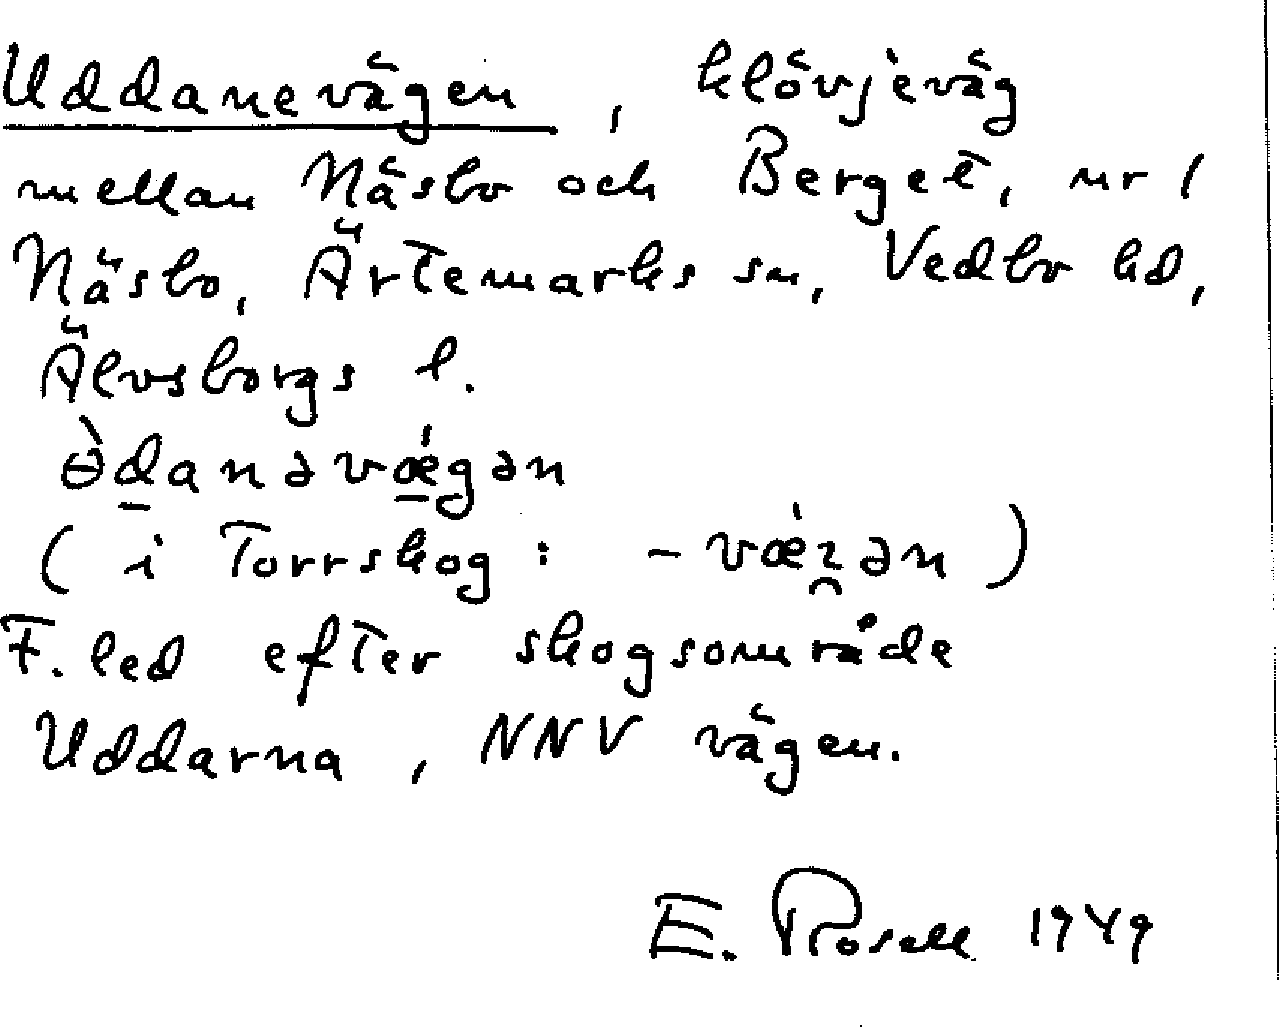 Uddanevägen, klövjeväg
mellan Näsbo och Berget, nr 1
Näsbo, Ärtemarks sn, Vedbo hd,
Älvsborgs l.
ɵ̀d̲anəvǽ̲gən
(i Torrskog: -vǽʒ̑ən)
F. led efter skogsområde
Uddarna, NNV vägen.
E. Rosell 1949